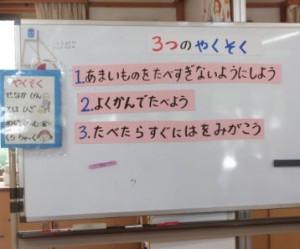 3つのやくそく
1.あまいものをたべすぎないようにしよう
2.よくかんでたべよう
3.たべたらすぐにはをみがこう
やくそく
せなか ぴん